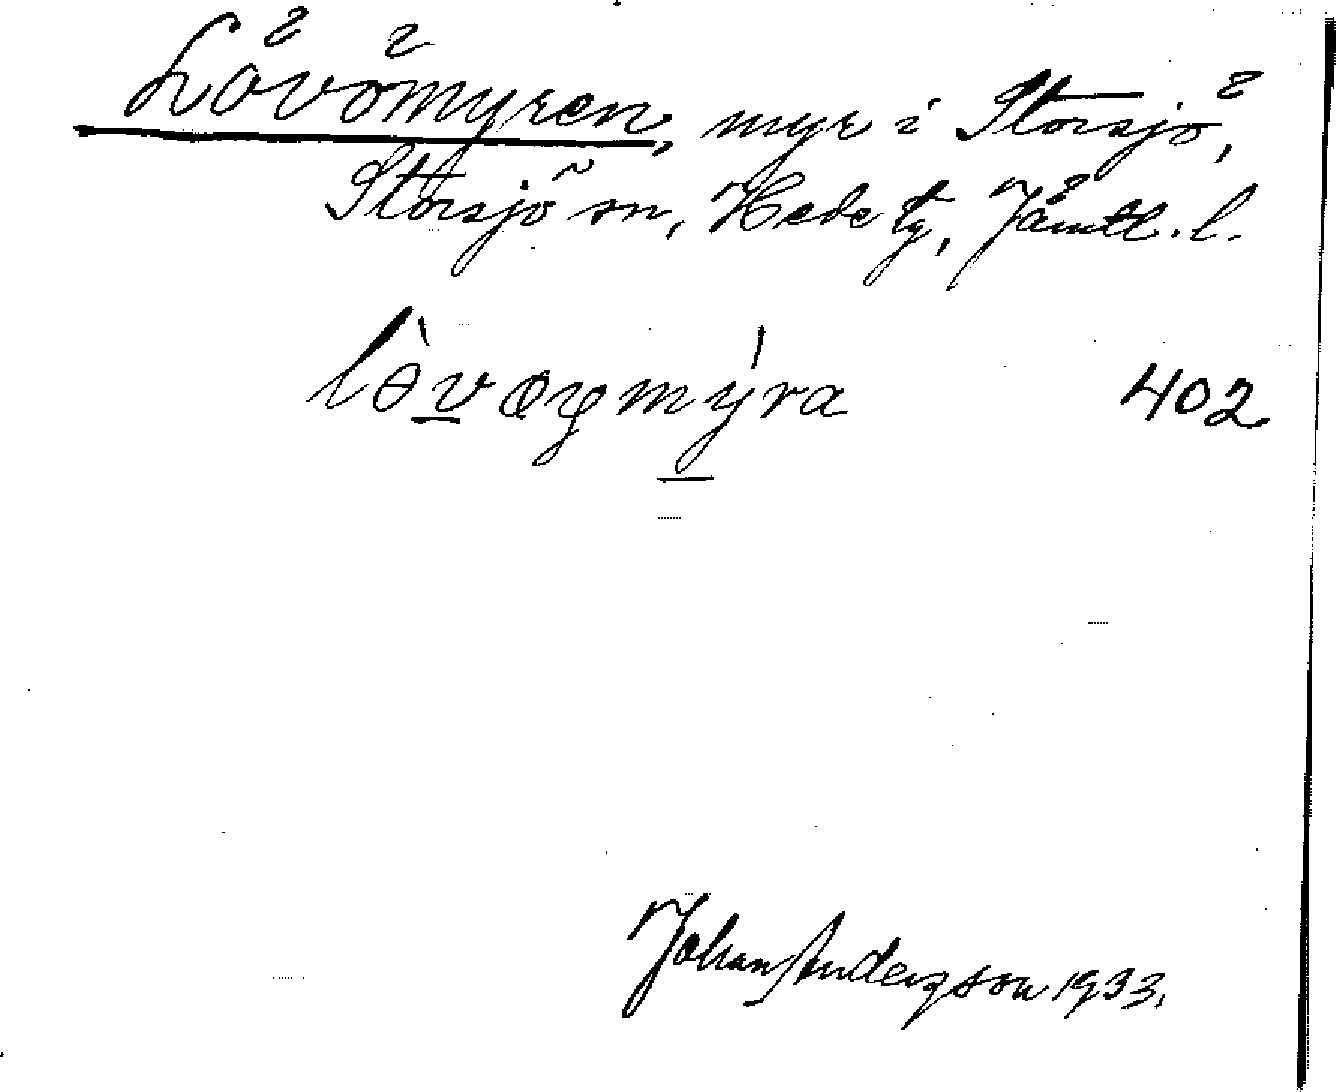 Lövömyren, myr i Storsjö,
Storsjö sn, Hede tg, Jämtl. l.
402
Johan Anderzson 1933.